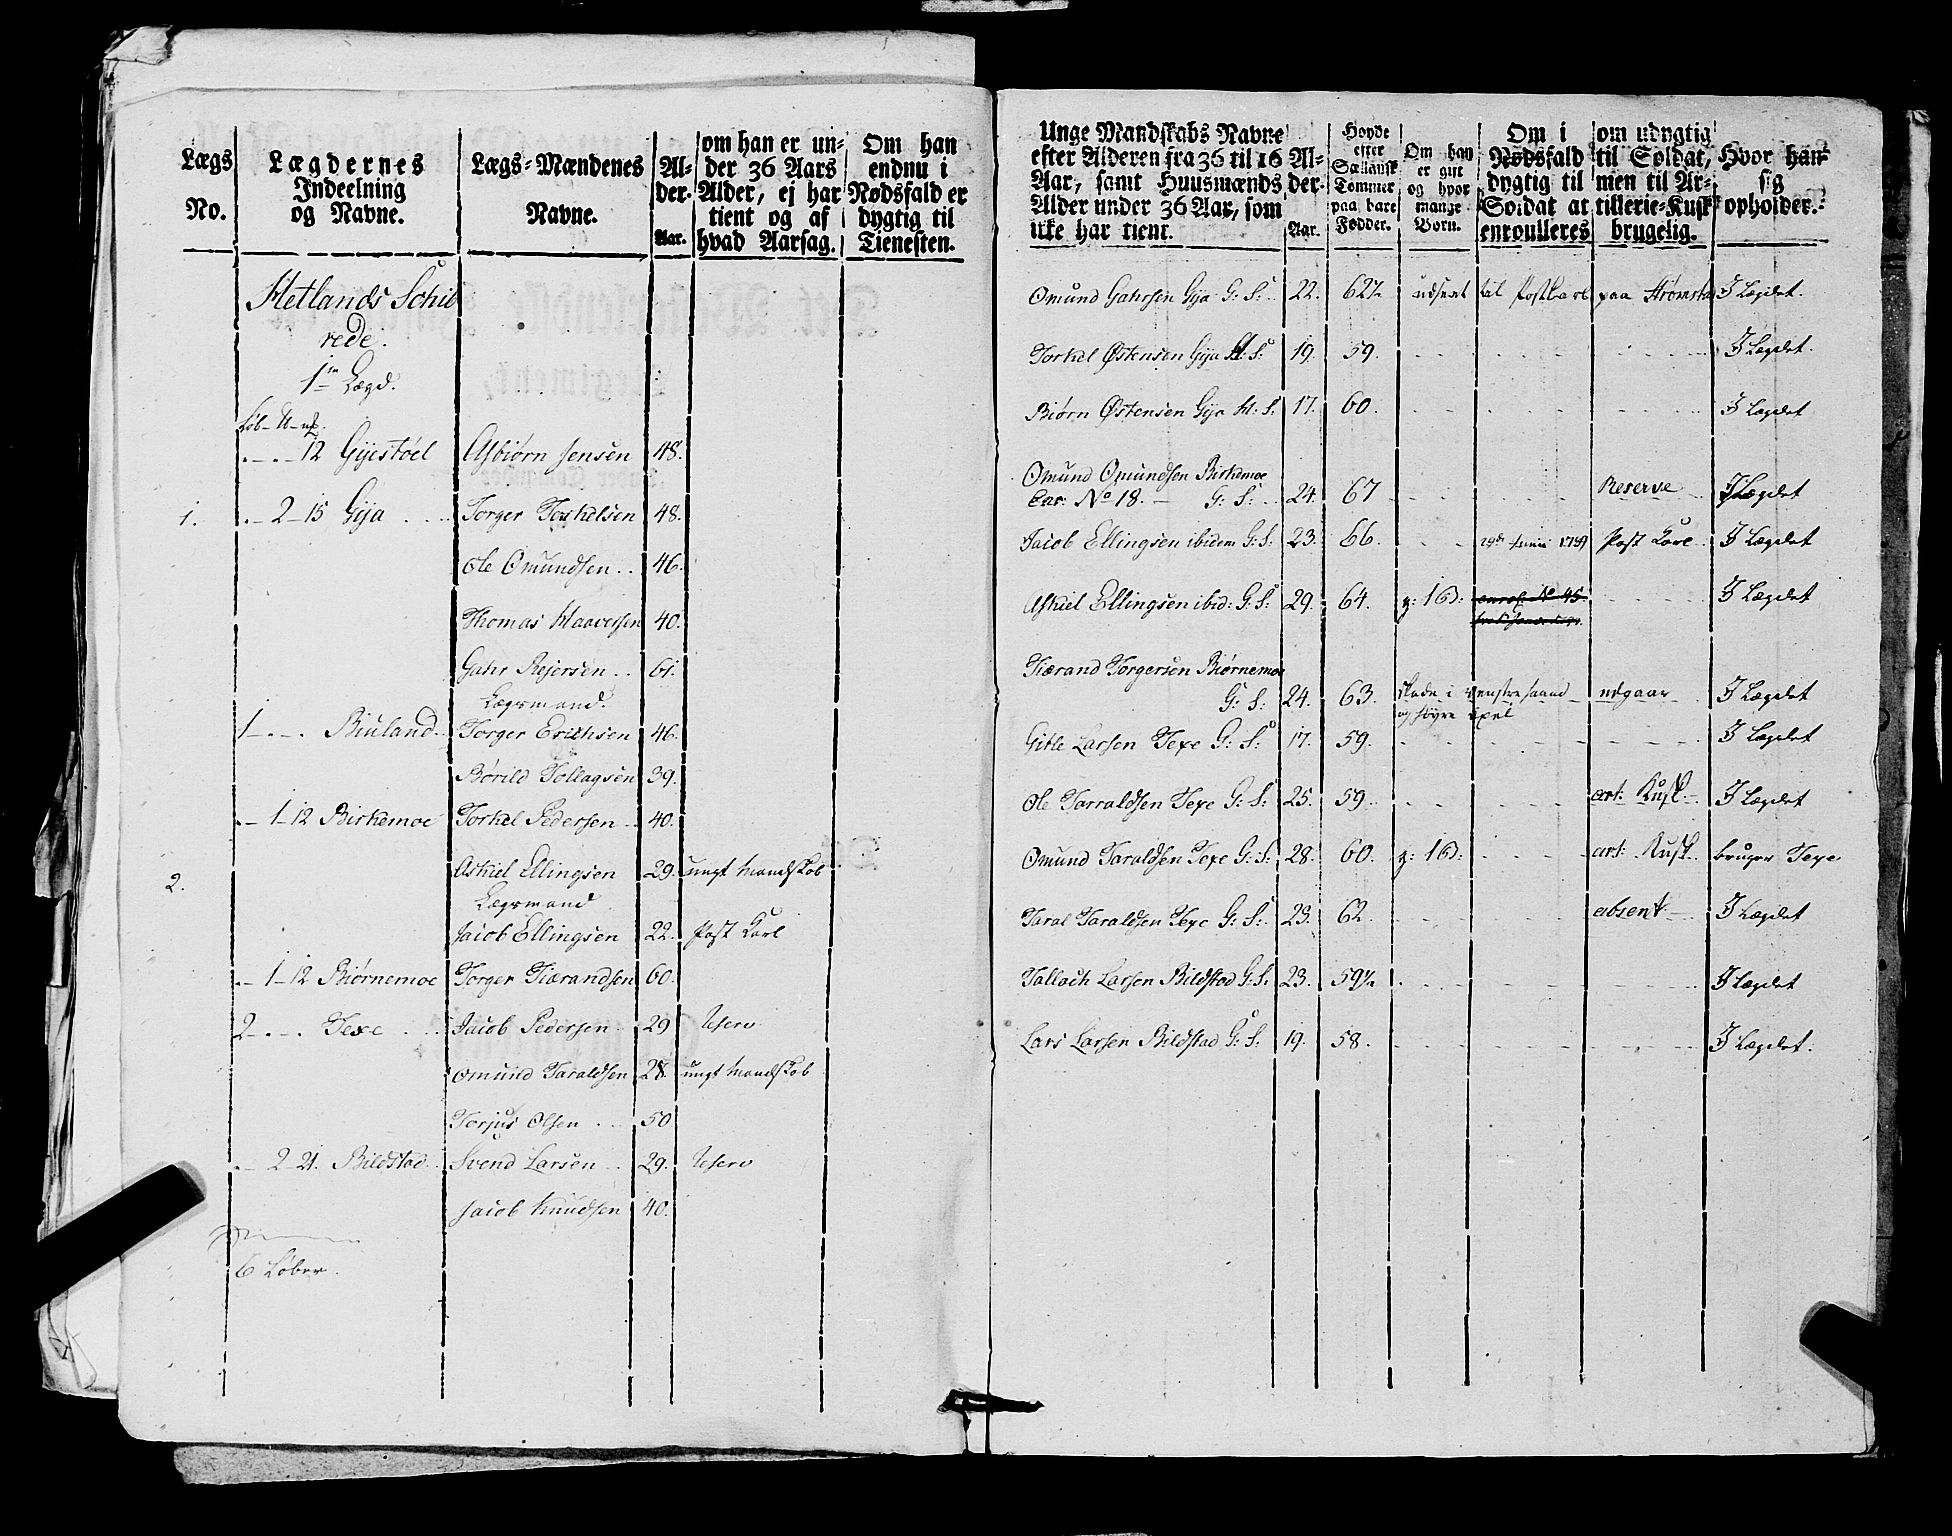 Lægs No.
Lægdernes Indeelning og Navne.
Lægs-Mændenes Navne.
Al-der. Aar.
om han er un-der 36 Aars Alder, ej har tient og af hvad Aarsag.
Om han endnu i Nødsfald er dygtig til Tienesten.
Hetlands Schib
rede.
1te Lægd.
12 Gyestøel Asbiørn Jensen 48.
1. 2-15 Gya Torger Torkelsen 48.
Ole Omundsen 46.
Thomas Haaversen 40.
Gahr Rejersen 61.
Lægsmand.
1 Biuland Torger Erichsen 46.
Børild Tollagsen 39.
1-12 Birkemoe Torkel Pedersen 40.
2. Askiel Ellingsen 29. ungt Mandskab
Lægsmand
Jacob Ellingsen 22. Post Karl
1-12 Biørnemoe Torger Tiærandsen 60.
2 Texe Jacob Pedersen 29
Omund Taraldsen 28. ungt Mandskab
Torjus Olsen 50
2-21. Bildstad Svend Larsen 29.
Jacob Knudsen 40.
6 Løber
Unge Mandskabs Navne efter Alderen fra 36 til 16 Aar, samt Huusmænds Alder under 36 Aar, som ikke har tient.
Al-der. Aar.
Høyde efter Siællansk Tommer paa bare Fødder.
Om han er gift og hvor mange Børn.
Om i Nødsfald dygtig til Soldat at enroulleres
om udygtig til Soldat, men til Ar-tillerie-Kusk brugelig.
Hvor han sig opholder.
Omund Gahrsen Gya G: S: 22. 62½ udsent til Postkarl paa I Lægdet.
Torkel Østensen Gya H: S: 19. 59. I Lægdet.
Biørn Østensen Gya H: S: 17. 60. I Lægdet
Omund Omundsen Birkemoe
No 18. G: S: 24. 67 Reserve I Lægdet
Jacob Ellingsen ibidem G: S: 23. 66. Post Karl I Lægdet
Askiel Ellingsen ibid: G: S: 29. 64. g: 1 B: enrol: No 45 I Lægdet
Tiærand Torgersen Biørnemoe
G: S: 24. 63. skade i venstre haand udgaar I Lægdet
Gitle Larsen Texe G: S: 17. 59. I Lægdet
Ole Tarraldsen Texe G: S: 25. 59. art: Kusk I Lægdet
Omund Taraldsen Texe G: S: 28. 60. g: 1 B: art: Kusk bruger Texe
Taral Taraldsen Texe G: S: 23. 62. absent I Lægdet
Tallach Larsen Bildstad G: S: 23. 59½ I Lægdet
Lars Larsen Bildstad G: S: 19. 58. I Lægdet.